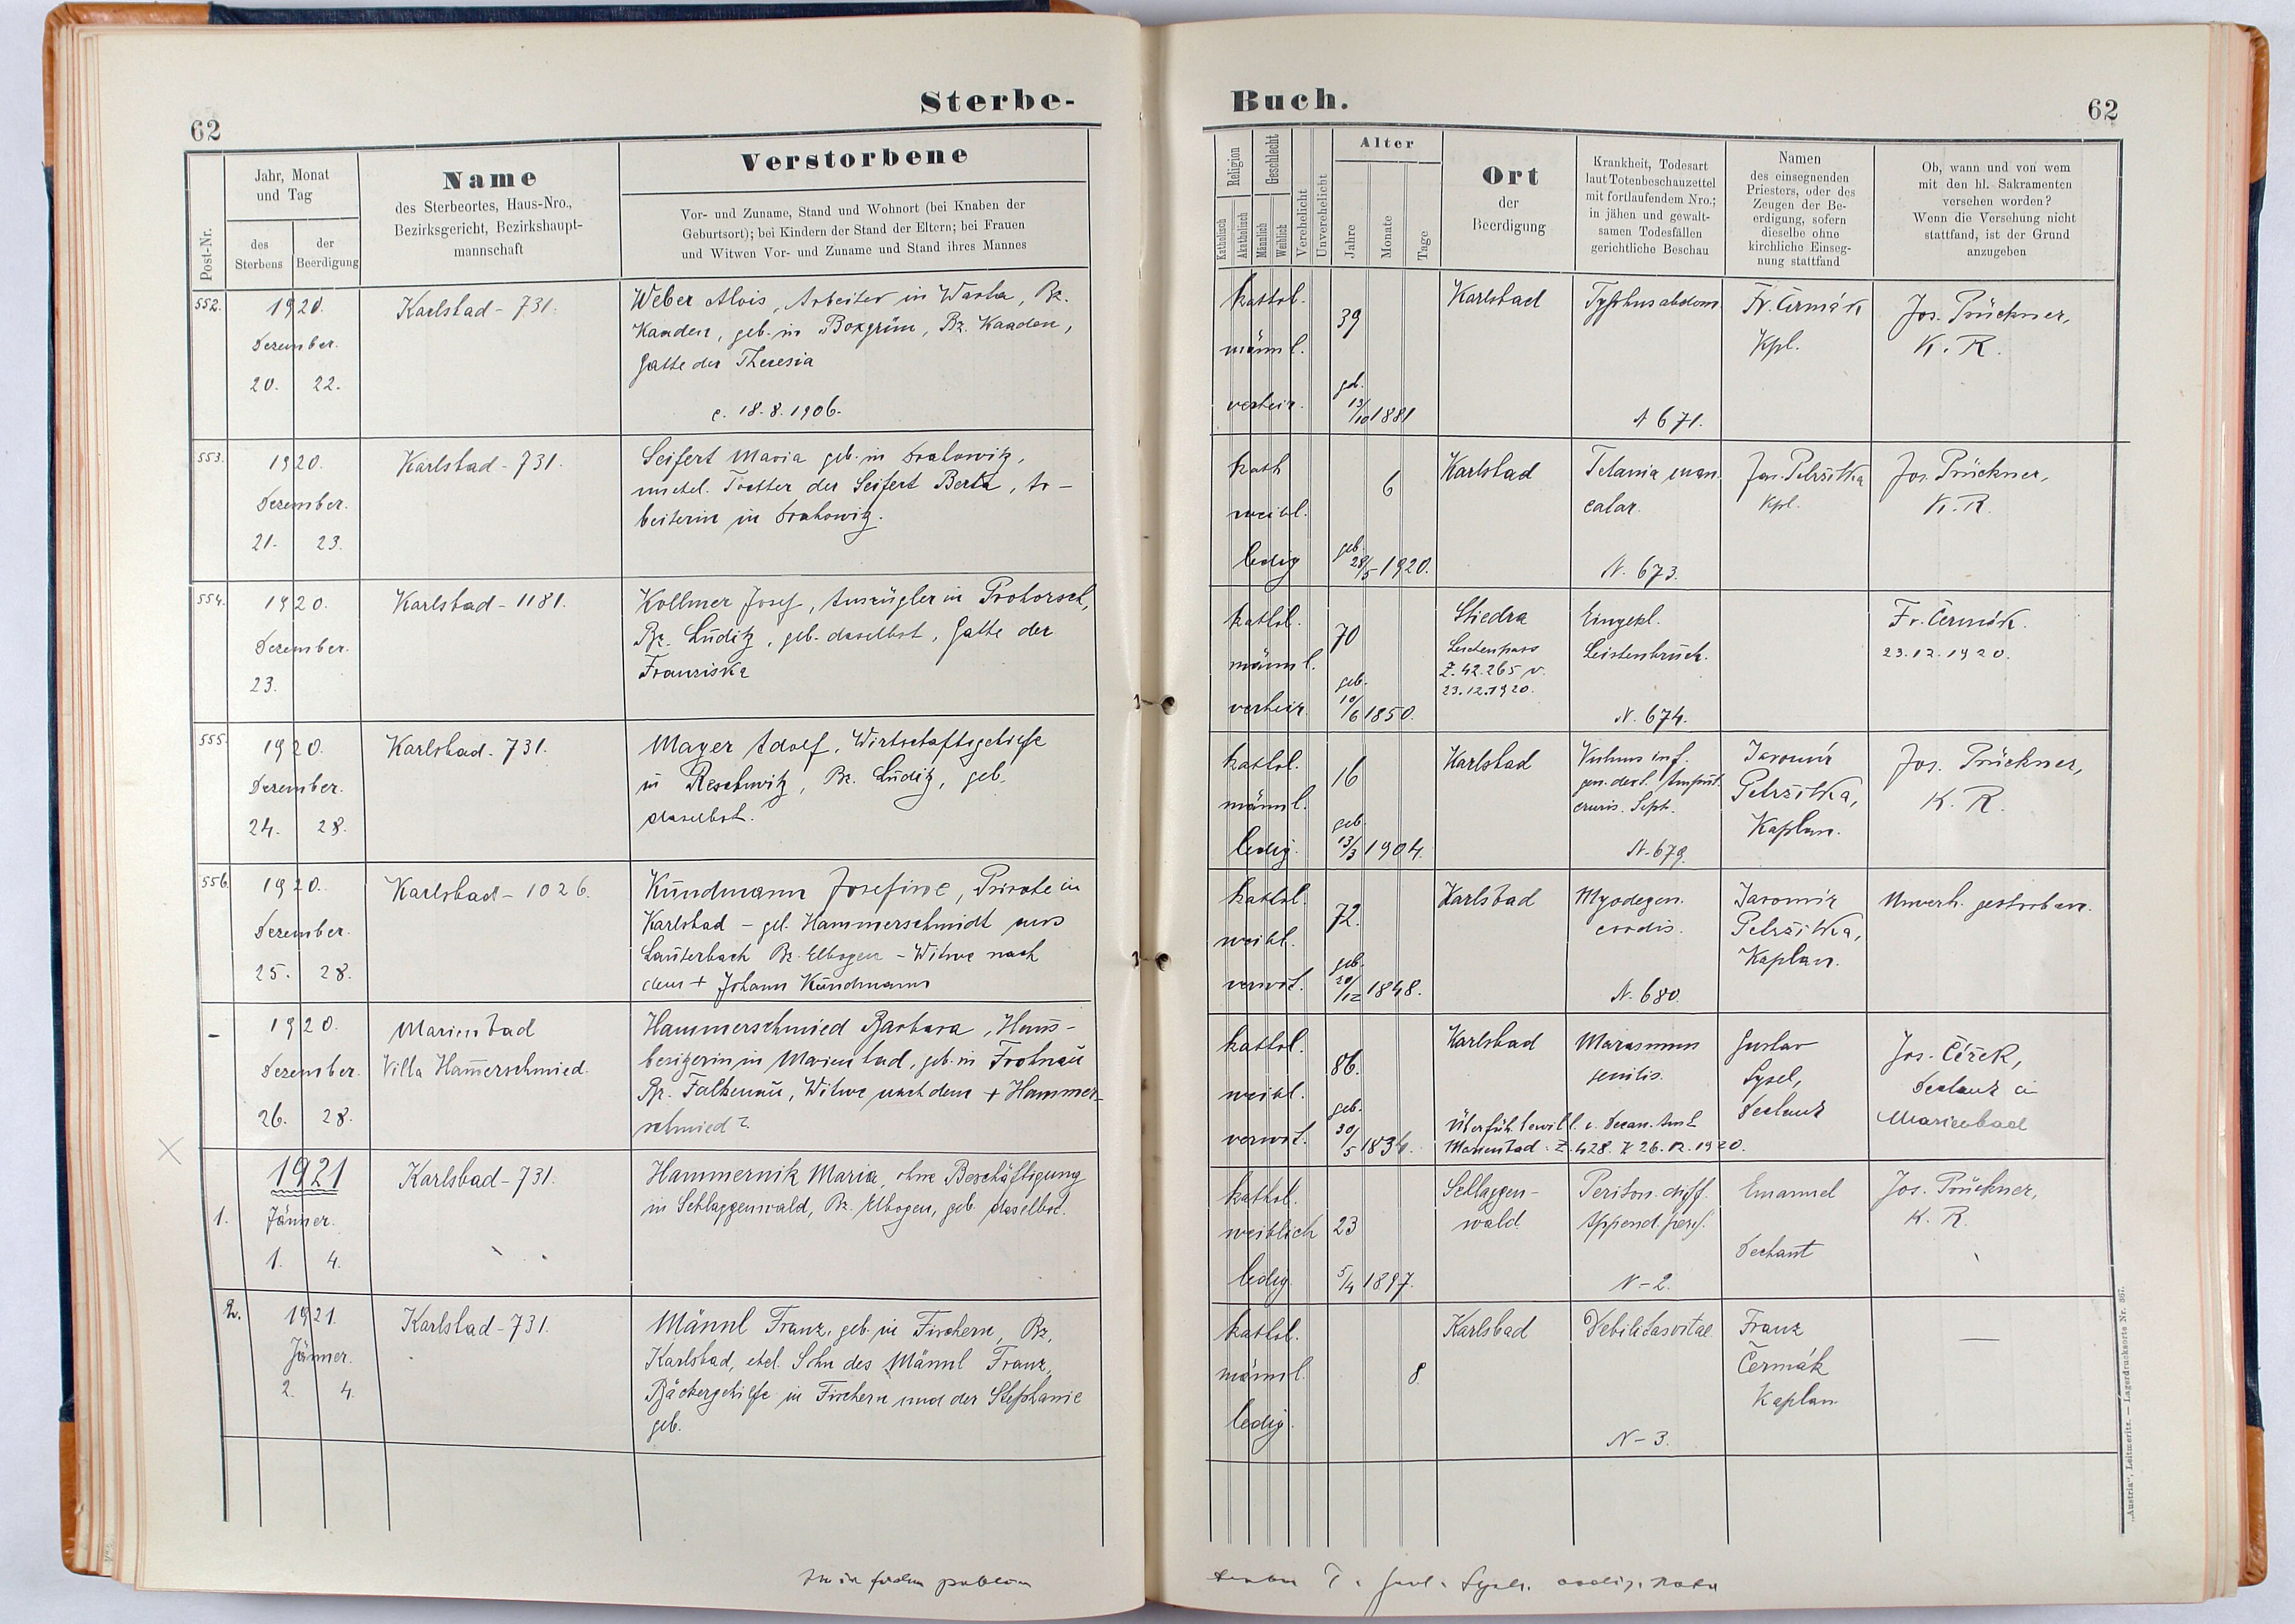 Sterbe-
62
Post-Nr.
Jahr, Monat
und Tag
des
Sterbens
der
Beerdigung
Name
des Sterbeortes, Haus-Nro.,
Bezirksgericht, Bezirkshaupt-
mannschaft
Verstorbene
Vor- und Zuname, Stand und Wohnort (bei Knaben der
Geburtsort); bei Kindern der Stand der Eltern; bei Frauen
und Witwen Vor- und Zuname und Stand ihres Mannes
552.
1920.
Dezember.
20. 22.
Karlsbad - 731.
Weber Alois, Arbeiter in Warta, Bz.
Kaaden, geb. in Boxgrün, Bz. Kaaden,
Gatte der Theresia
c. 18.8.1906.
553.
1920.
Dezember.
21. 23.
Karlsbad - 731.
Seifert Maria geb. in Drahowitz,
unehel. Tochter der Seifert Berta, Ar-
beiterin in Drahowitz.
554.
1920.
Dezember.
23.
Karlsbad - 1181.
Kollmer Josef, Auszügler in Prohorsch,
Bz. Luditz, geb. daselbst, Gatte der
Franziska
555.
1920.
Dezember.
24. 28.
Karlsbad - 731.
Mayer Adolf, Wirtschaftsgehilfe
in Reschwitz, Bz. Luditz, geb.
daselbst.
556.
1920.
Dezember.
25. 28.
Karlsbad - 1026.
Kundmann Josefine, Private in
Karlsbad - geb. Hammerschmidt aus
Lauterbach Bz. Elbogen - Witwe nach
dem + Johann Kundmann
-
1920.
Dezember.
26. 28.
Marienbad
Villa Hammerschmied.
Hammerschmied Barbara, Haus-
besitzerin in Marienbad, geb. in Frohnau
Bz. Falkenau, Witwe nach dem + Hammer-
schmied ?
1.
1921
Jänner.
1. 4.
Karlsbad - 731.
Hammernik Maria, ohne Beschäftigung
in Schlaggenwald, Bz. Elbogen, geb. daselbst.
2.
1921.
Jänner.
2. 4.
Karlsbad - 731.
Männl Franz, geb. in Fischern, Bz.
Karlsbad, ehel. Sohn des Männl Franz,
Bäckergehilfe in Fischern und der Stephanie
geb.
Buch.
62
Religion
Katholisch
Akatholisch
Geschlecht
Männlich
Weiblich
Verehelicht
Unverehelicht
Alter
Jahre
Monate
Tage
Ort
der
Beerdigung
Krankheit, Todesart
laut Totenbeschauzettel
mit fortlaufendem Nro.;
in jähen und gewalt-
samen Todesfällen
gerichtliche Beschau
Namen
des einsegnenden
Priesters, oder des
Zeugen der Be-
erdigung, sofern
dieselbe ohne
kirchliche Einseg-
nung stattfand
Ob, wann und von wem
mit den hl. Sakramenten
versehen worden?
Wenn die Versehung nicht
stattfand, ist der Grund
anzugeben
kathol.
männl.
verheir.
39
geb.
13/10 1881
Karlsbad
Typhus abdom.
N 671.
Fr. Čermák
Kpl.
Jos. Prückner,
K. R.
kath
weibl.
ledig
6
geb.
28/5 1920.
Karlsbad
N. 673.
Jar. Petržilka
Kpl.
Jos. Prückner,
K. R.
kathol.
männl.
verheir.
70
geb.
10/6 1850.
Stiedra
Leichenpass
Z. 42.265 v.
23.12.1920.
Eingekl.
Leistenbruch.
N. 674.
Fr. Čermák.
23.12.1920.
kathol.
männl.
ledig.
16
geb.
13/3 1904.
Karlsbad
Vulnus inf.
gen. dext. Amput.
cruris. Seph.
N. 679.
Jaromír
Petržilka,
Kaplan.
Jos. Prückner,
K. R.
kathol.
weibl.
verwit.
72.
geb.
20/12 1848.
Karlsbad
Myodegen.
cordis.
N. 680.
Jaromír
Petržilka,
Kaplan.
Unverh. gestorben.
kathol.
weibl.
verwit.
86.
geb.
30/5 1834.
Karlsbad
Marasmus
senilis.
Gustav
Sysel,
Dechant
Jos. Čížek,
Dechant in
Marienbad
Marienbad. Z. 428. 26.12.1920.
kathol.
weiblich
ledig
23
5/4 1897.
Schlaggen-
wald
Periton. diff.
Append. perf.
N - 2.
Emanuel
Dechant
Jos. Prückner,
K. R.
kathol.
männl.
ledig.
8
Karlsbad
Debilitas vitae
N - 3.
Franz
Čermák
Kaplan
—
„Austria", Leitmeritz. — Lagerdrucksorte Nr. 367.